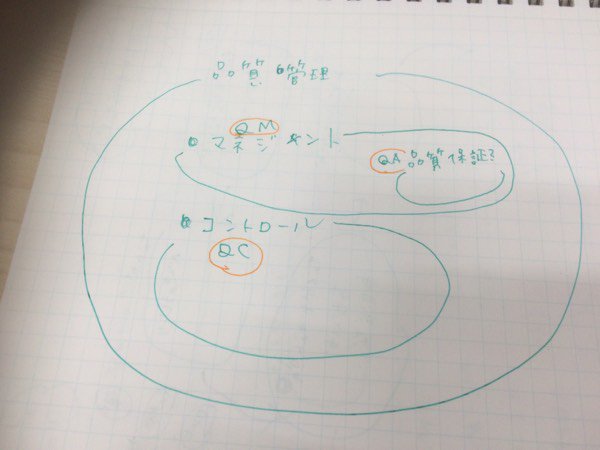 品質管理
QM
マネジメント
QA 品質保証?
コントロール
QC